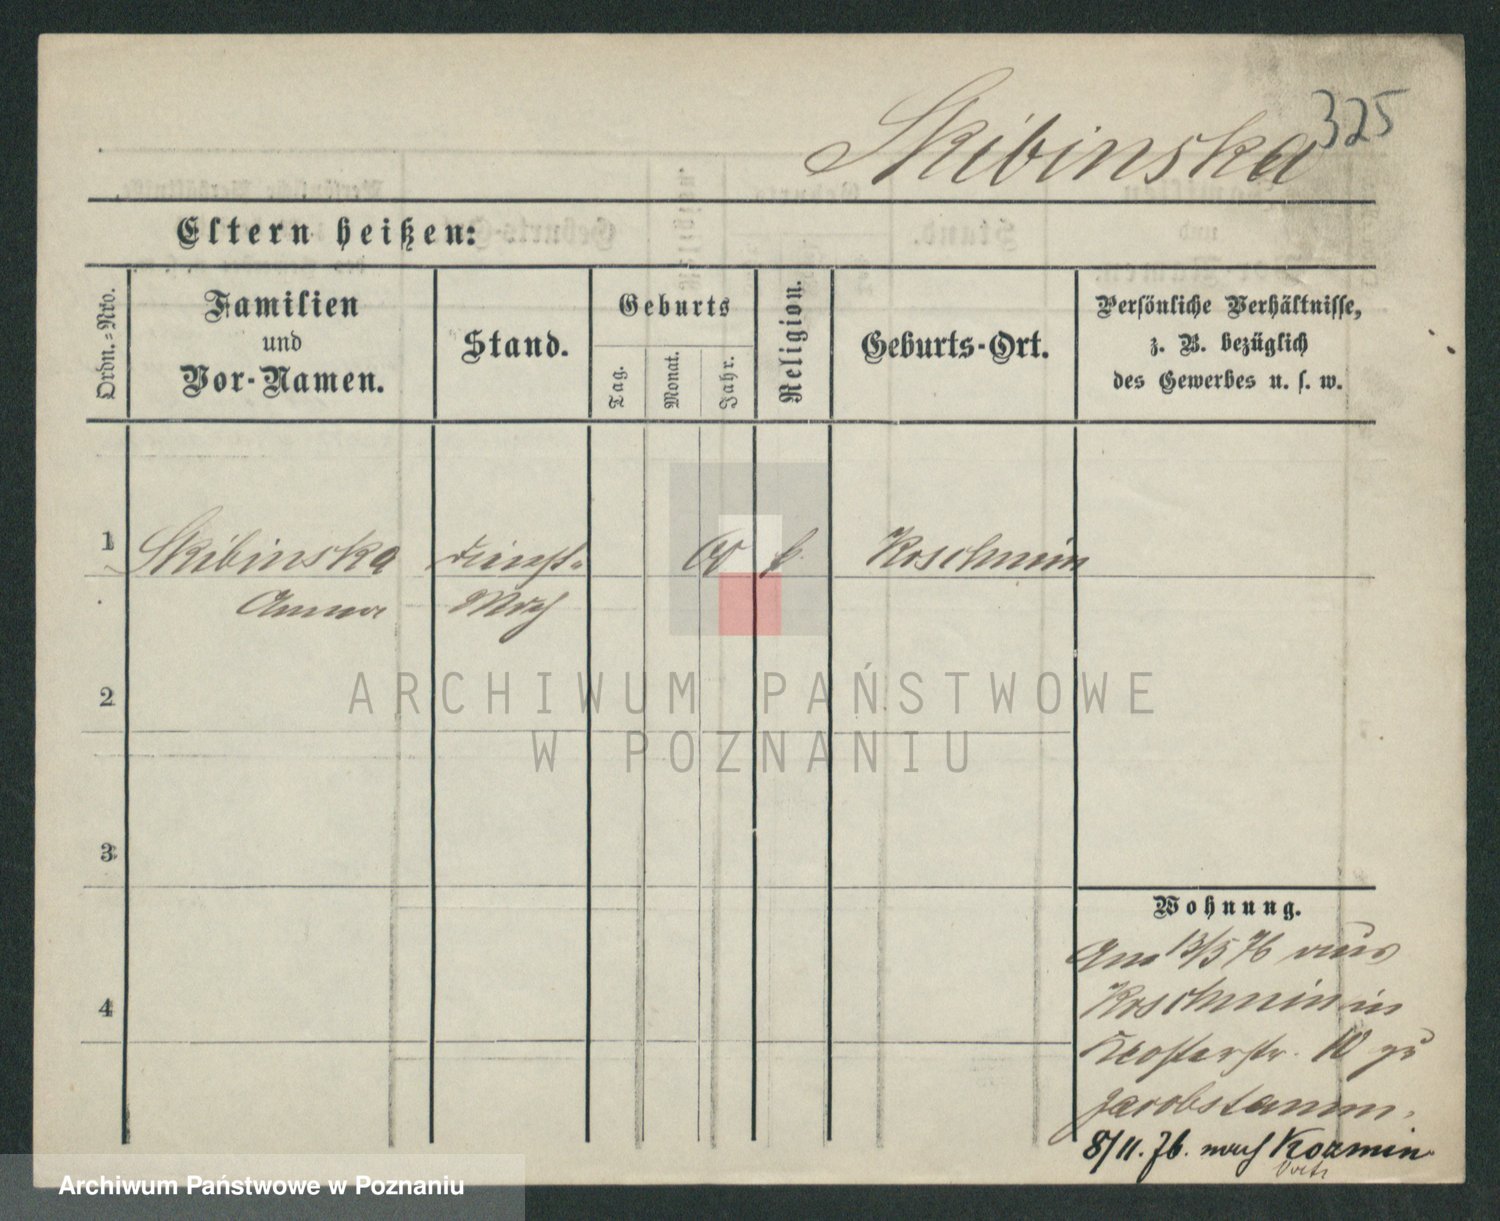 325
Skibinska
Eltern heißen:
Ordn.=Nro.
Familien
und
Vor-Namen.
Stand.
Geburts
Tag.
Monat.
Jahr.
Religion.
Geburts-Ort.
Persönliche Verhältnisse,
z. B. bezüglich
des Gewerbes u. s. w.
1
Skibinska
Anna
Dienst-
k
Koschmin
2
3
4
Wohnung.
Am 13/5 76 aus
Koschmin in
Klosterstr. 10 zu
Jacobstamm.
8/11. 76. nach Kozmin
ARCHIWUM PAŃSTWOWE
W POZNANIU
Archiwum Państwowe w Poznaniu